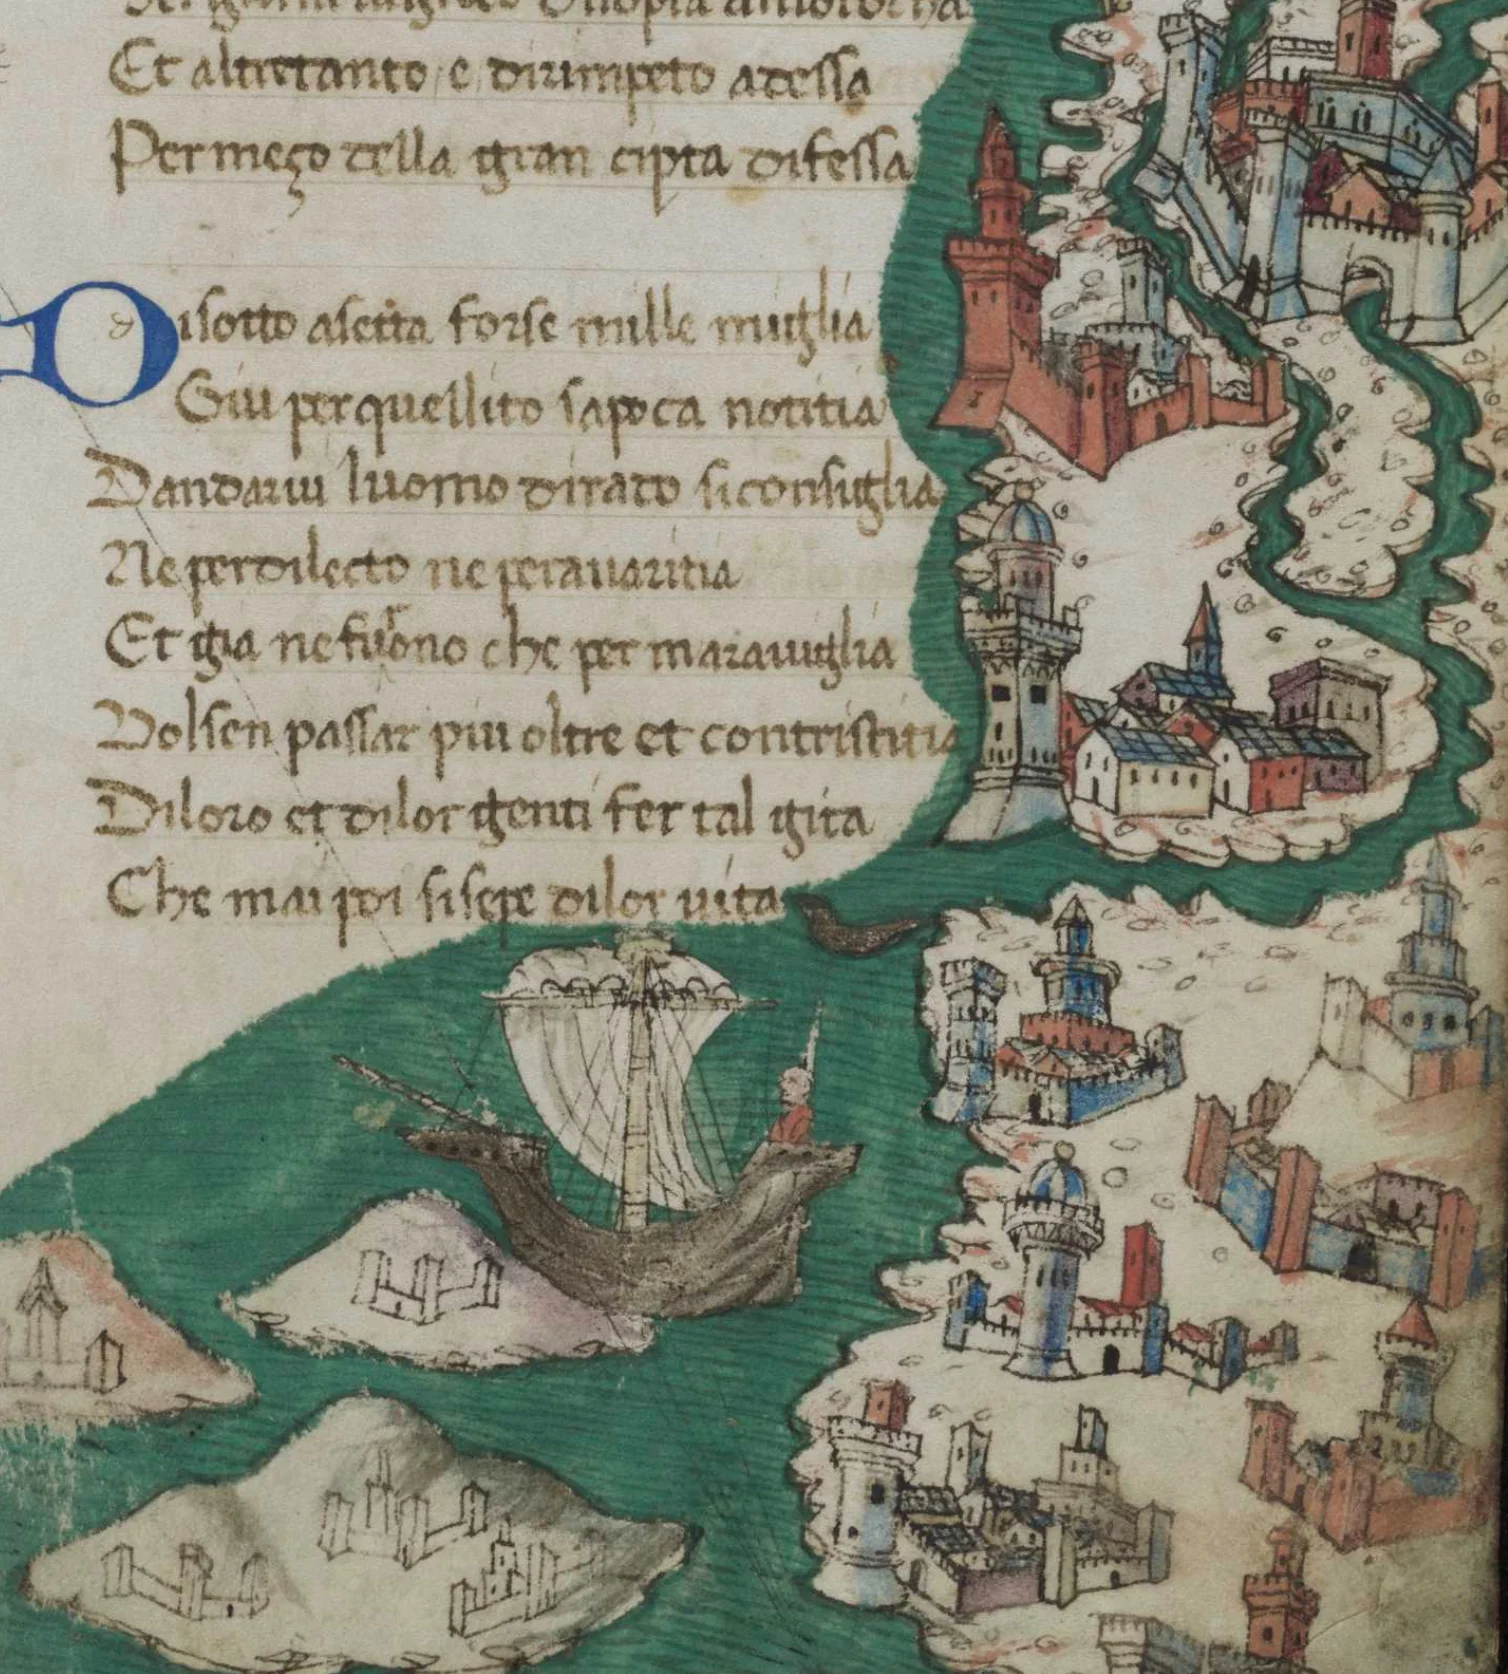 Et altrettanto e dirimpeto adessa
Per meço della gran cipta difessa
Disotto asetta forse mille miglia
Giu per quel lito sa poca notitia
Dandariu luomo dirado si consiglia
Ne per dilecto ne per avaritia
Et gia ne furono che per maraviglia
Volsen passar piu oltre et contristitia
Di loro et dilor genti fer tal gita
Che mai poi si sepe dilor vita